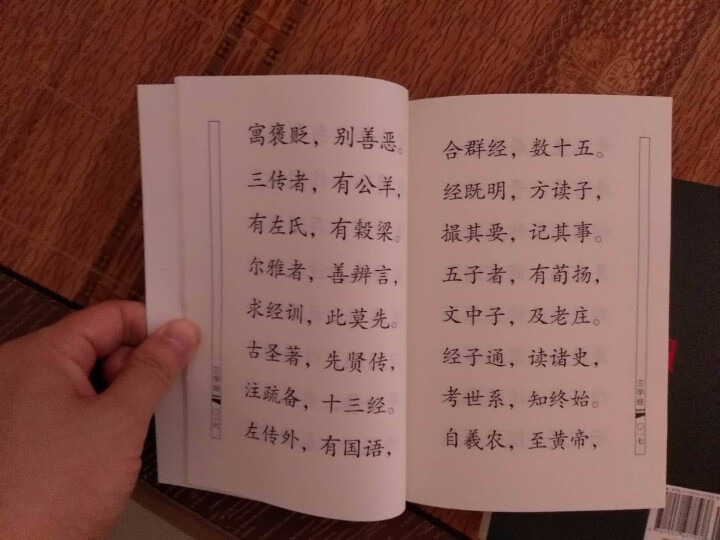 寓褒贬，别善恶。
三传者，有公羊，
有左氏，有穀梁。
尔雅者，善辨言，
求经训，此莫先。
古圣著，先贤传，
注疏备，十三经。
左传外，有国语，
三字经
〇一六
合群经，数十五。
经既明，方读子，
撮其要，记其事。
五子者，有荀扬，
文中子，及老庄。
经子通，读诸史，
考世系，知终始。
自羲农，至黄帝，
三字经
〇一七